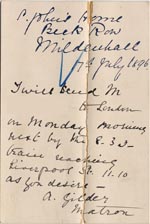 St John's Home
Beck Row
Mildenhall
7th July 1896
I will send M
to London
on Monday morning
next by the 8.32
train reaching
Liverpool St. 11.10
as you desire —
A. Gilder
Matron